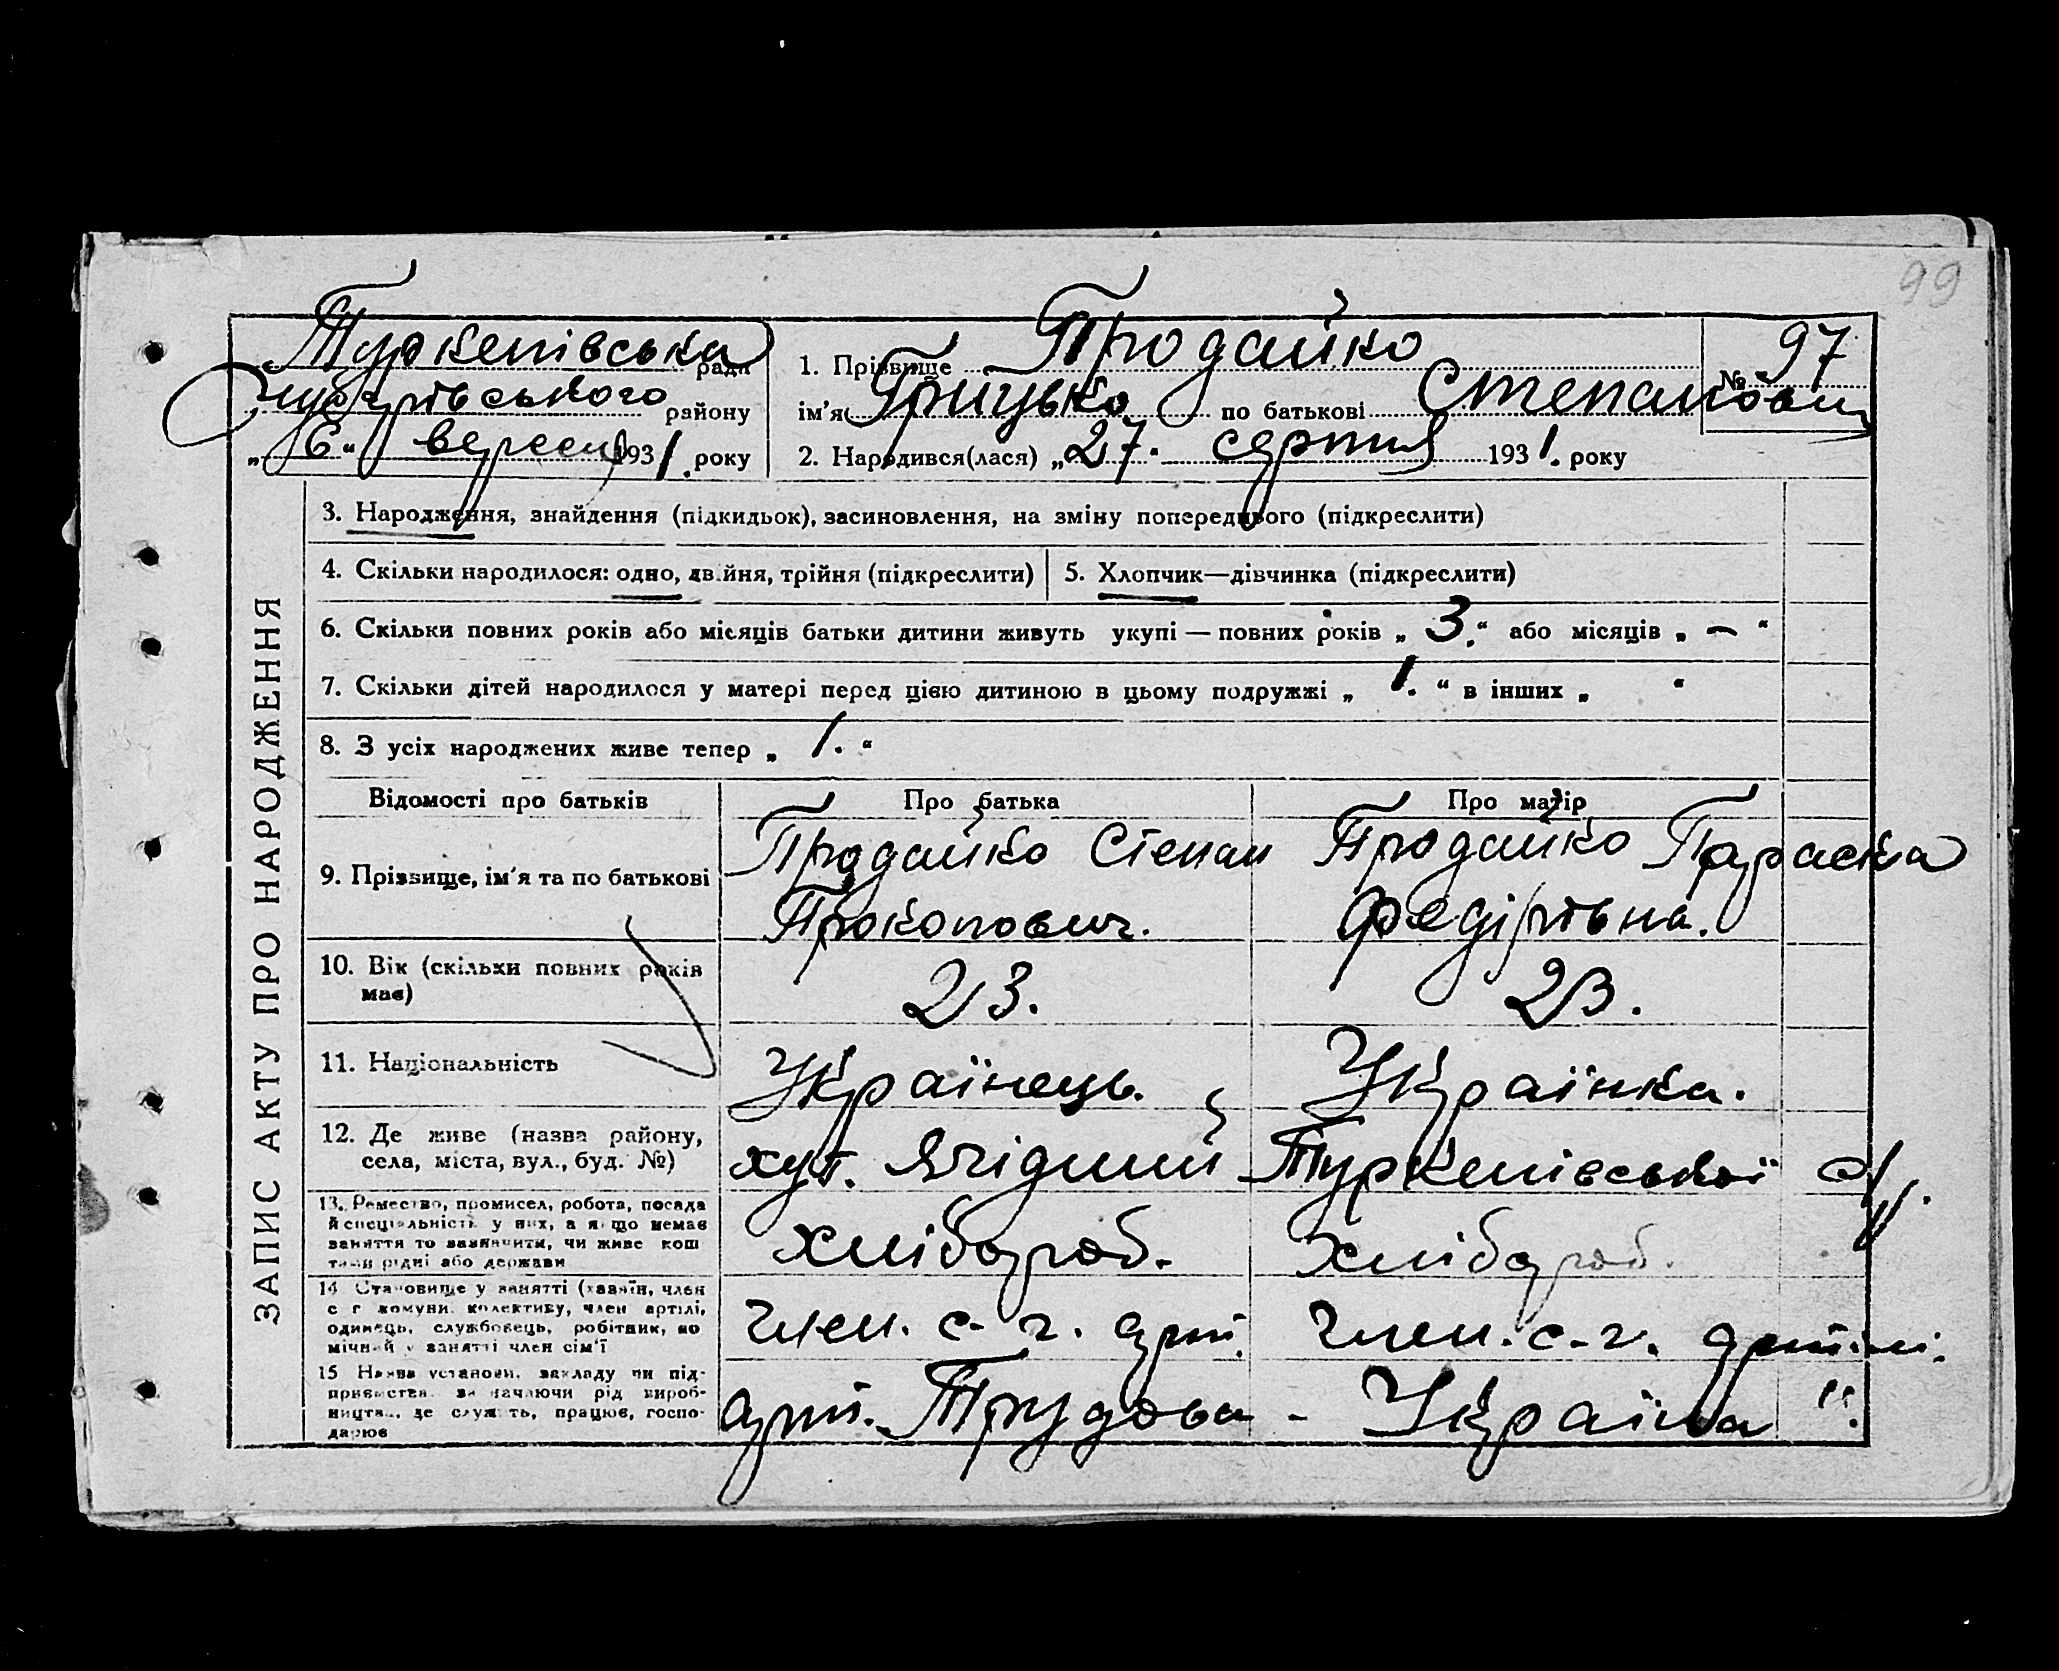 99
Туркенівська рада
Чубарівського району
„6“ вересня 1931. року
1. Прізвище Продайко
№ 97
ім'я Грицько по батькові Степанович
2. Народився(лася) „27. серпня 1931. року
ЗАПИС АКТУ ПРО НАРОДЖЕННЯ
3. Народження, знайдення (підкидьок), засиновлення, на зміну попереднього (підкреслити)
4. Скільки народилося: одно, двійня, трійня (підкреслити)
5. Хлопчик—дівчинка (підкреслити)
6. Скільки повних років або місяців батьки дитини живуть укупі — повних років „3.“ або місяців „ — “
7. Скільки дітей народилося у матері перед цією дитиною в цьому подружжі „1.“ в інших „ “
8. З усіх народжених живе тепер „1.“
Відомості про батьків
Про батька
Про матір
9. Прізвище, ім'я та по батькові
Продайко Степан
Прокопович.
Продайко Параска
Федірівна.
10. Вік (скільки повних років
має)
23.
23.
11. Національність
Українець.
Українка.
12. Де живе (назва району,
села, міста, вул., буд. №)
хут. Ягідний Туркенівської с/р.
13. Ремество, промисел, робота, посада
й спеціяльність у них, а якщо немає
заняття то зазначити, чи живе кош
тами рідні або держави
хлібороб.
хлібороб.
14 Становище у занятті (хазяїн, член
с г комуни, колективу, член артілі,
одинець, службовець, робітник, по
мічний у занятті член сім'ї
член. с-г. арт.
член. с-г. артілі.
15 Назва установи, закладу чи під-
приємства, зазначаючи рід вироб-
ництва, де служить, працює, госпо-
дарює
арт. Трудова - Україна".